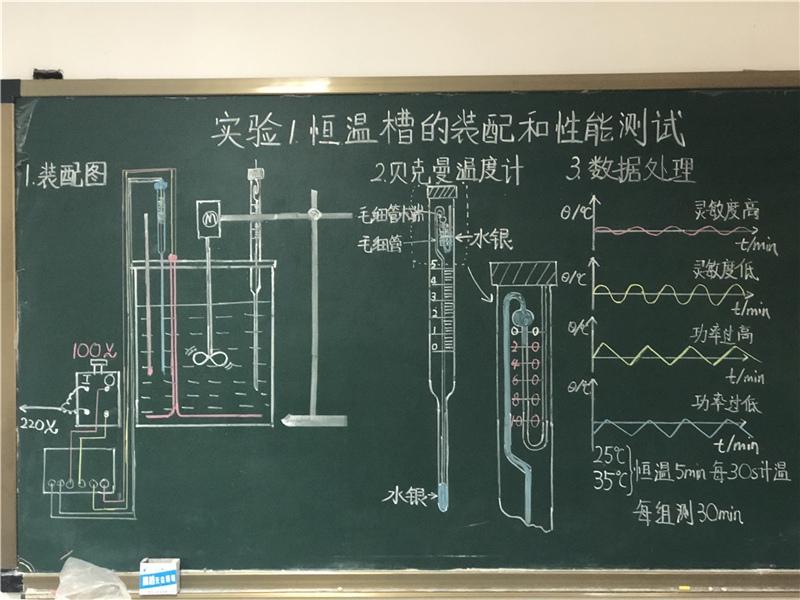 实验1.恒温槽的装配和性能测试
1.装配图
M
100%
220%
2.贝克曼温度计
毛细管末端
毛细管
水银
5
4
3
2
1
0
水银
0 0
2 2
4 4
6 6
8 8
10 10
3.数据处理
θ/℃
灵敏度高
t/min
θ/℃
灵敏度低
t/min
θ/℃
功率过高
t/min
θ/℃
功率过低
t/min
25℃
35℃
恒温5min每30s计温
每组测30min